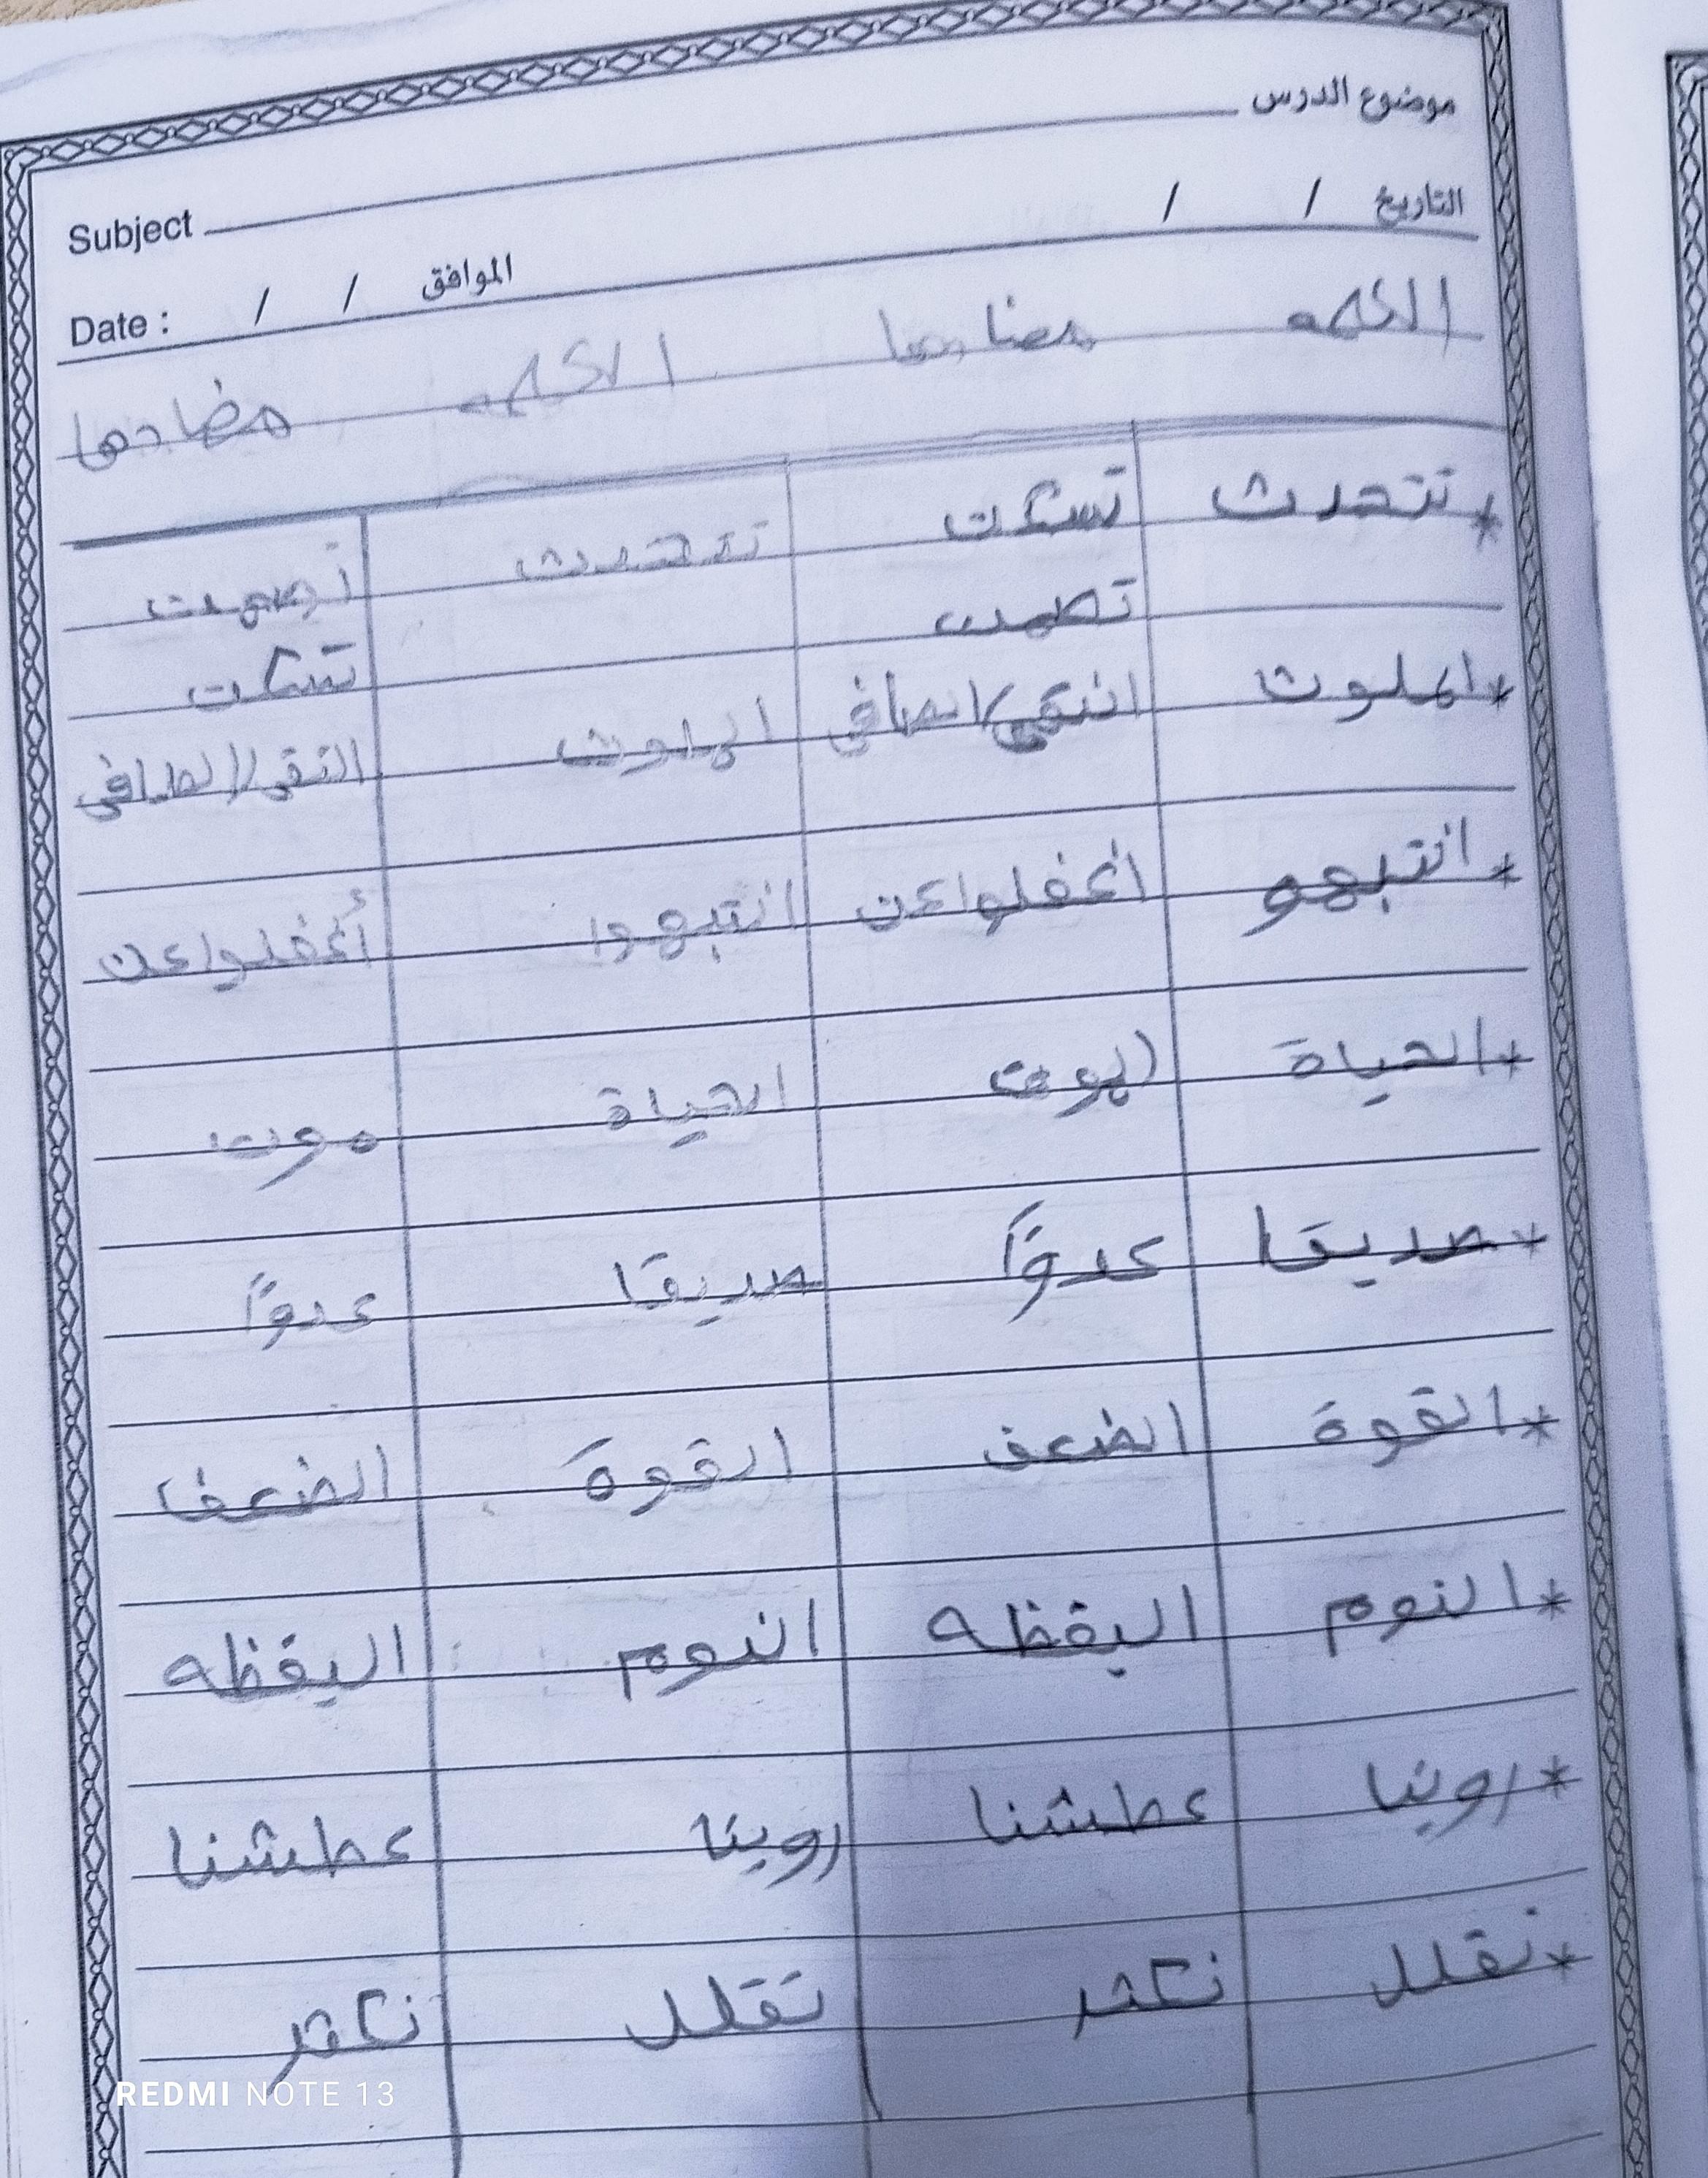 موضوع الدرس
Subject
التاريخ / /
Date : / / الموافق
الكلمه مضادها الكلمه مضادها
* تتحدث تسكت تتحدث تصمت
تصمت تسكت
* الملوث النقي/الصافي الملوث النقي/الصافي
* انتبهو اغفلوا عن انتبهوا أغفلوا عن
* الحياة الموت الحياة موت
* صديقا عدوًا صديقا عدوًا
* القوة الضعف القوة الضعف
* النوم اليقظه النوم اليقظه
* روينا عطشنا روينا عطشنا
* نقلل نكثر نقلل نكثر
REDMI NOTE 13